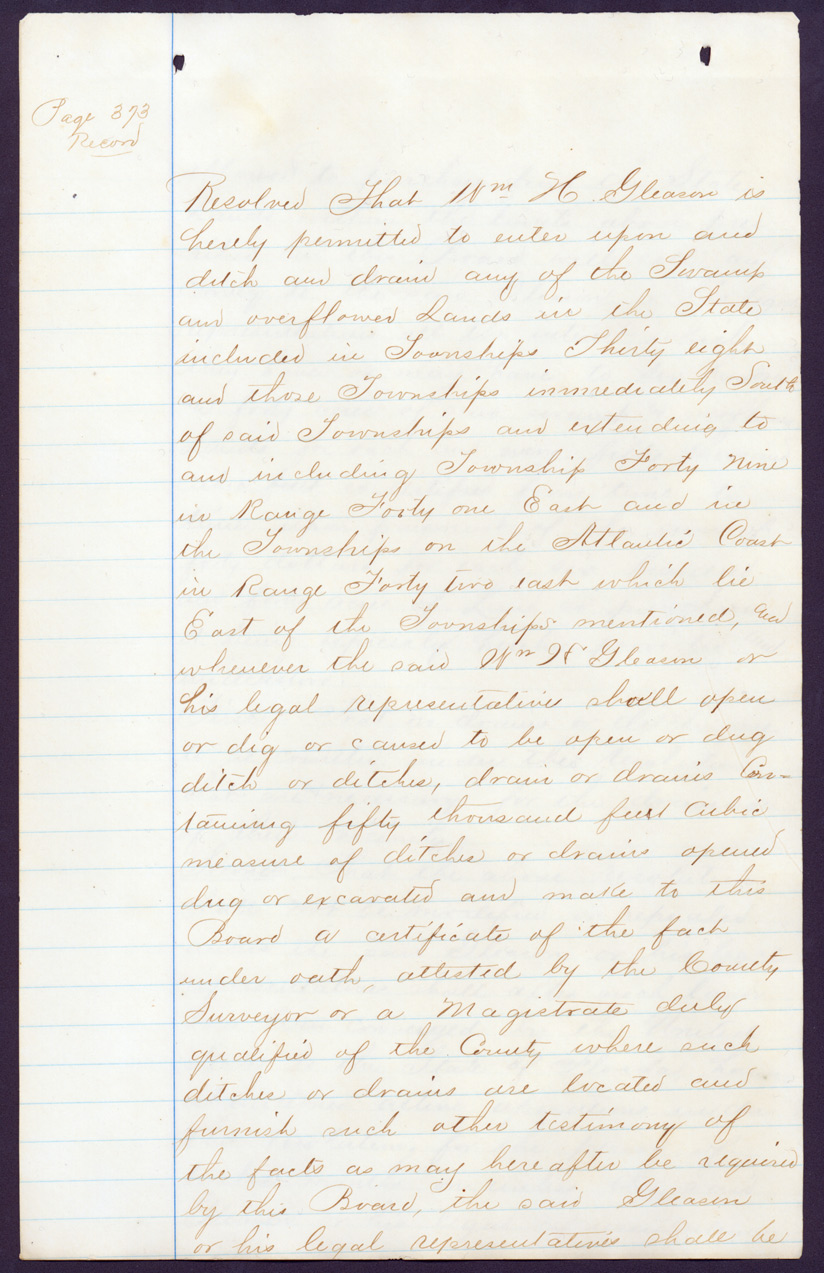 Page 373
Record
Resolved That Wm H. Gleason is
hereby permitted to enter upon and
ditch and drain any of the Swamp
and overflowed Lands in the State
included in Townships Thirty eight
and those Townships immediately South
of said Townships and extending to
and including Township Forty Nine
in Range Forty one East and in
the Townships on the Atlantic Coast
in Range Forty two east which lie
East of the Townships mentioned, and
whenever the said Wm H Gleason or
his legal representatives shall open
or dig or caused to be open or dug
ditch or ditches, drain or drains Con-
taining fifty thousand feet Cubic
measure of ditches or drains opened
dug or excavated and make to this
Board a certificate of the fact
under oath, attested by the County
Surveyor or a Magistrate duly
qualified of the County where such
ditches or drains are located and
furnish such other testimony of
the facts as may hereafter be required
by this Board, the said Gleason
or his legal representatives shall be